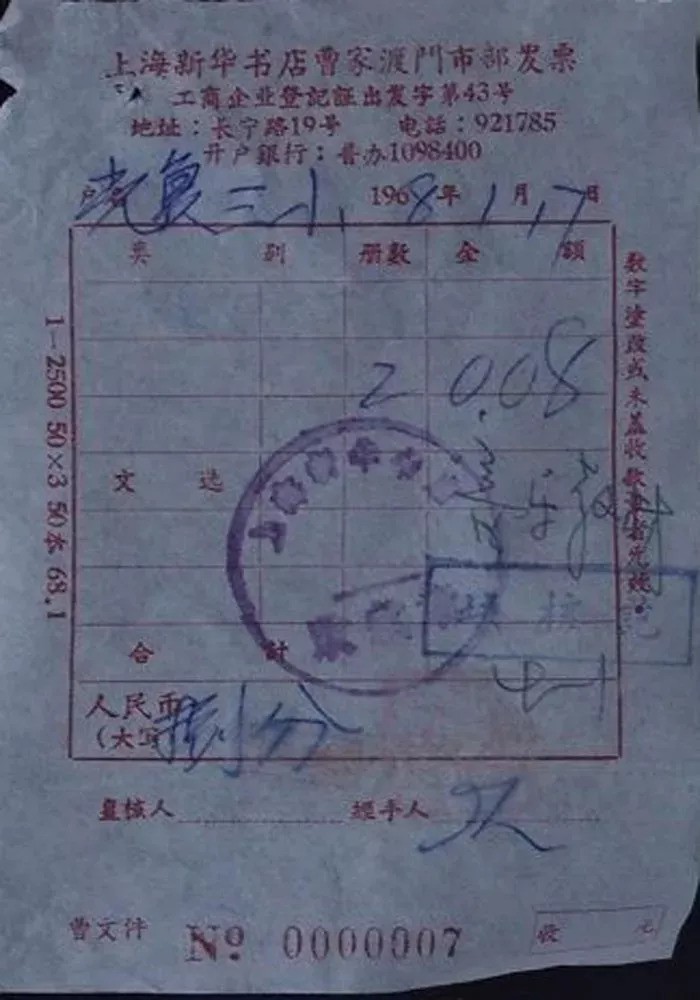 上海新华书店曹家渡門市部发票
工商企业登記証出发字第43号
地址：长宁路19号 电話：921785
开户銀行：普办1098400
三小 1968年1月17日
类 别 册数 金 額
2 0.08
文 选
合 計
人民币
(大写) 捌分
复核人 經手人
数字塗改或未盖收款章者无效
1—2500 50×3 50本 68.1
曹文件 № 0000007 收 讫